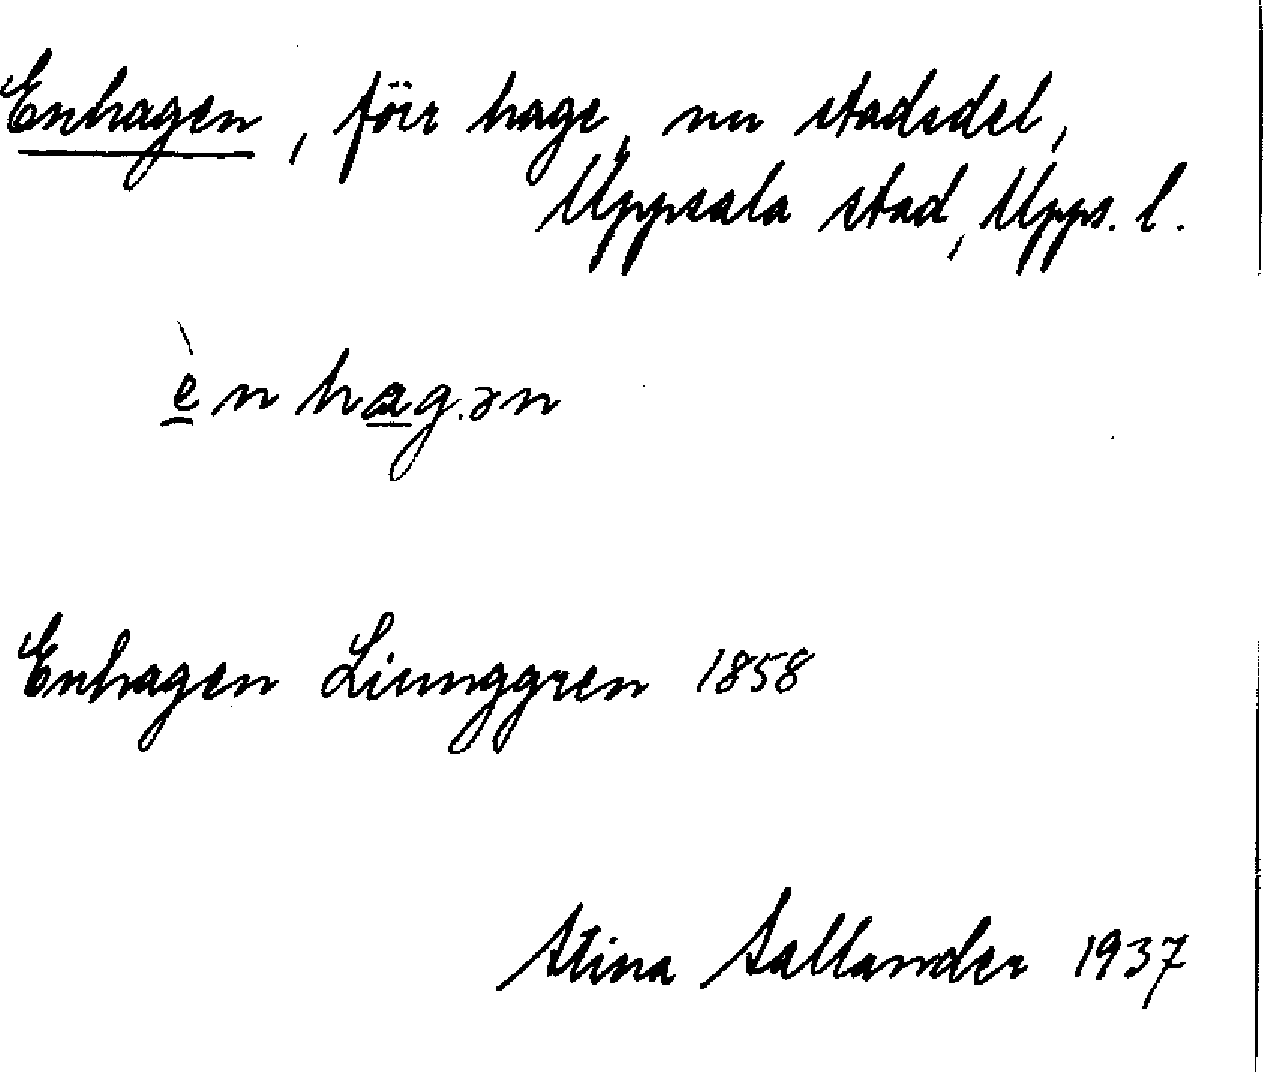 Enhagen, förr hage, nu stadsdel,
Uppsala stad, Upps. l.
è̱nha̱g.ən
Enhagen Liunggren 1858
Stina Sallander 1937